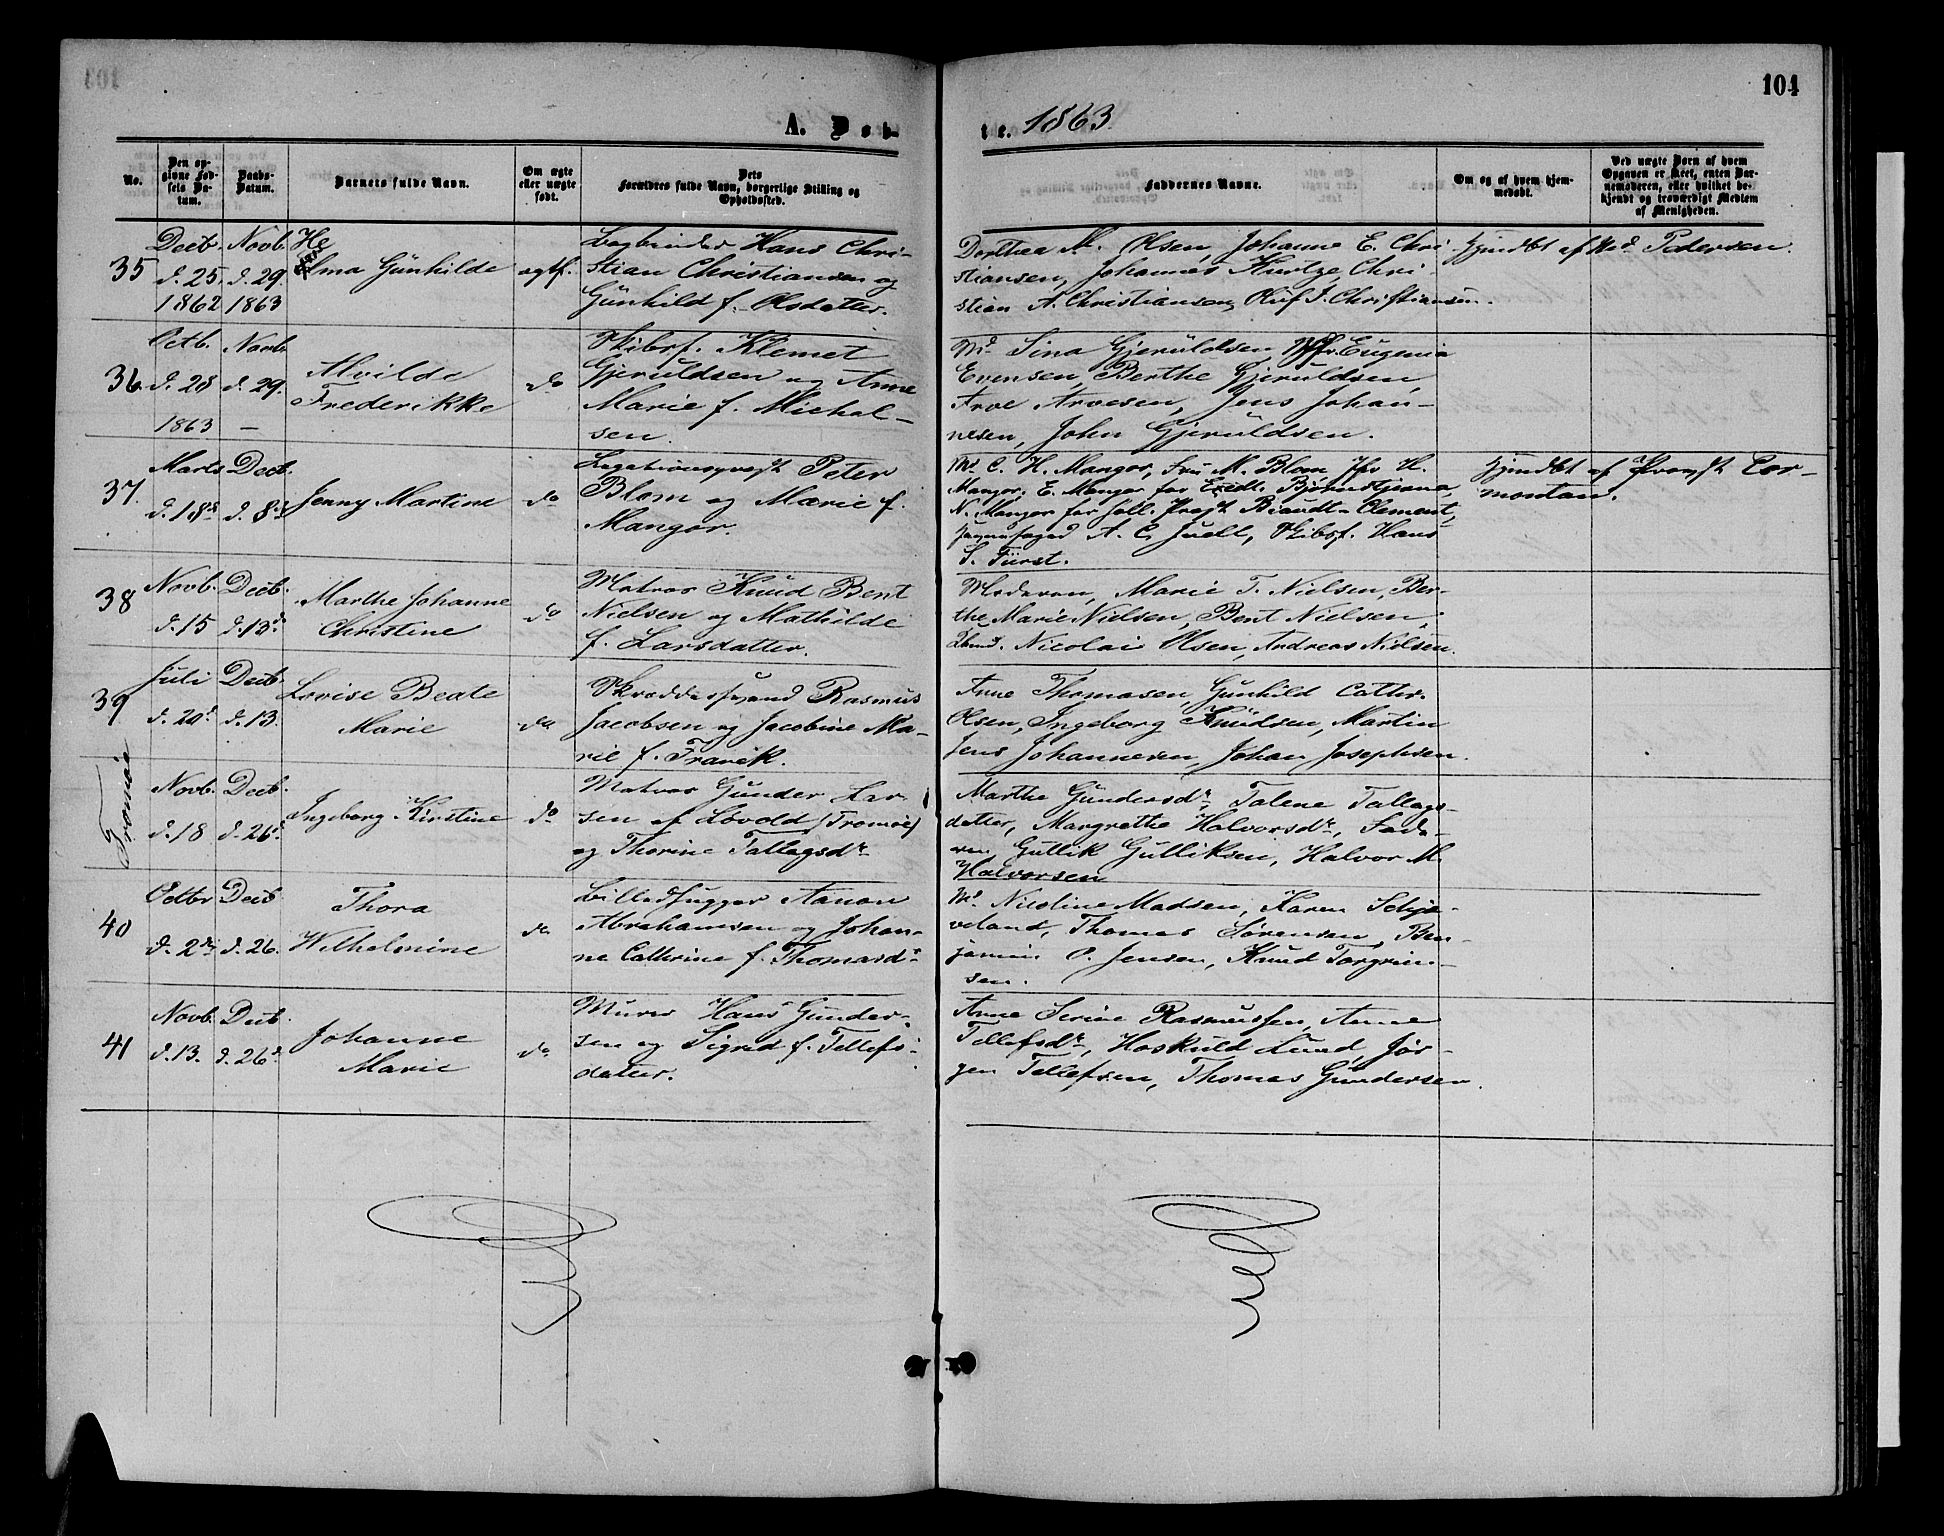 104
A. Døb-
te. 1863.
No.
Den op-
givne Fød-
sels Da-
tum.
Daabs-
Datum.
Barnets fulde Navn.
Om ægte
eller uægte
født.
Dets
Forældres fulde Navn, borgerlige Stilling og
Opholdssted.
Faddernes Navne.
Om og af hvem hjem-
medøbt.
Ved uægte Børn af hvem
Opgaven er skeet, enten Bar-
nemoderen, eller hvilket be-
kjendt og troværdigt Medlem
af Menigheden.
35
Decb.
d. 25.
1862
Novb.
d. 29.
1863
He
lma Gunhilde
ægtf.
Bogbinder Hans Chri-
stian Christiansen og
Gunhild f. Olsdatter.
Dorthea M. Olsen, Johanne E. Chri-
stiansen, Johannes Kurtze, Chri-
stian A. Christiansen, Oluf J. Christiansen.
Hjemdbt af Md. Pedersen.
36
Octb.
d. 28
1863
Novb
d. 29.
—
Alvilde
Frederikke
do
Skibsf. Klemet
Gjeruldsen og Anne
Marie f. Michel-
sen.
Md. Sina Gjeruldsen, Jfr. Eugenia
Evensen, Berthe Gjeruldsen,
Arve Arvesen, Jens Johan-
nesen, John Gjeruldsen.
37.
Marts
d. 18de
Decb.
d. 8de
Jenny Martine
do
Legationspræst Peter
Blom og Marie f.
Mangor.
Md. C. H. Mangor, Fru M. Blom, Jfr H.
Mangor, E. Mangor for Bjørnstjerna,
N. Mangor for holl. Præst Brandt-Clement,
A. C. Juell, Skibsf. Hans
S. Fürst.
Hjemdbt af Provst Cor-
montan.
38
Novb.
d. 15
Decb.
d. 13de
Marthe Johanne
Christine
do
Matros Knud Bent
Nielsen og Mathilde
f. Larsdatter.
Moderen, Marie T. Nielsen, Ber-
the Marie Nielsen, Bent Nielsen,
Nicolai Olsen, Andreas Nielsen.
39
Juli
d. 20de
Decb.
d. 13.
Lovise Beate
Marie
do
Skræddersvend Rasmus
Jacobsen og Jacobine Ma-
rie f. Fravik.
Anne Thomasen, Gunhild Cathr.
Olsen, Ingeborg Knudsen, Martin
Jens Johannesen, Johan Josephsen.
Tromøe
Novb.
d. 18
Decb.
d. 26de
Ingeborg Kirstine
do
Matros Gunder Lar-
sen af Løvold (Tromøe)
og Thorine Tallagsdr
Marthe Gundersdr, Talene Tallags-
datter, Margrethe Halvorsdr, Fade-
ren, Gullik Gulliksen, Halvor M.
Halvorsen
40
Octbr
d. 2den
Decb
d. 26.
Thora
Wilhelmine
do
Billedhugger Aanon
Abrahamsen og Johan-
ne Cathrine f. Thomasdr
Md. Nicoline Madsen, Karen Schje-
veland, Thomas Sørensen, Ben-
jamin O. Jensen, Knud Torgrim-
sen.
41
Novb.
d. 13.
Decb.
d. 26de
Johanne
Marie
do
Murer Hans Gunder-
sen og Sigrid f. Tellefs-
datter.
Anne Serine Rasmussen, Anne
Tellefsdr, Haskuld Lund, Jør-
gen Tellefsen, Thomas Gundersen.